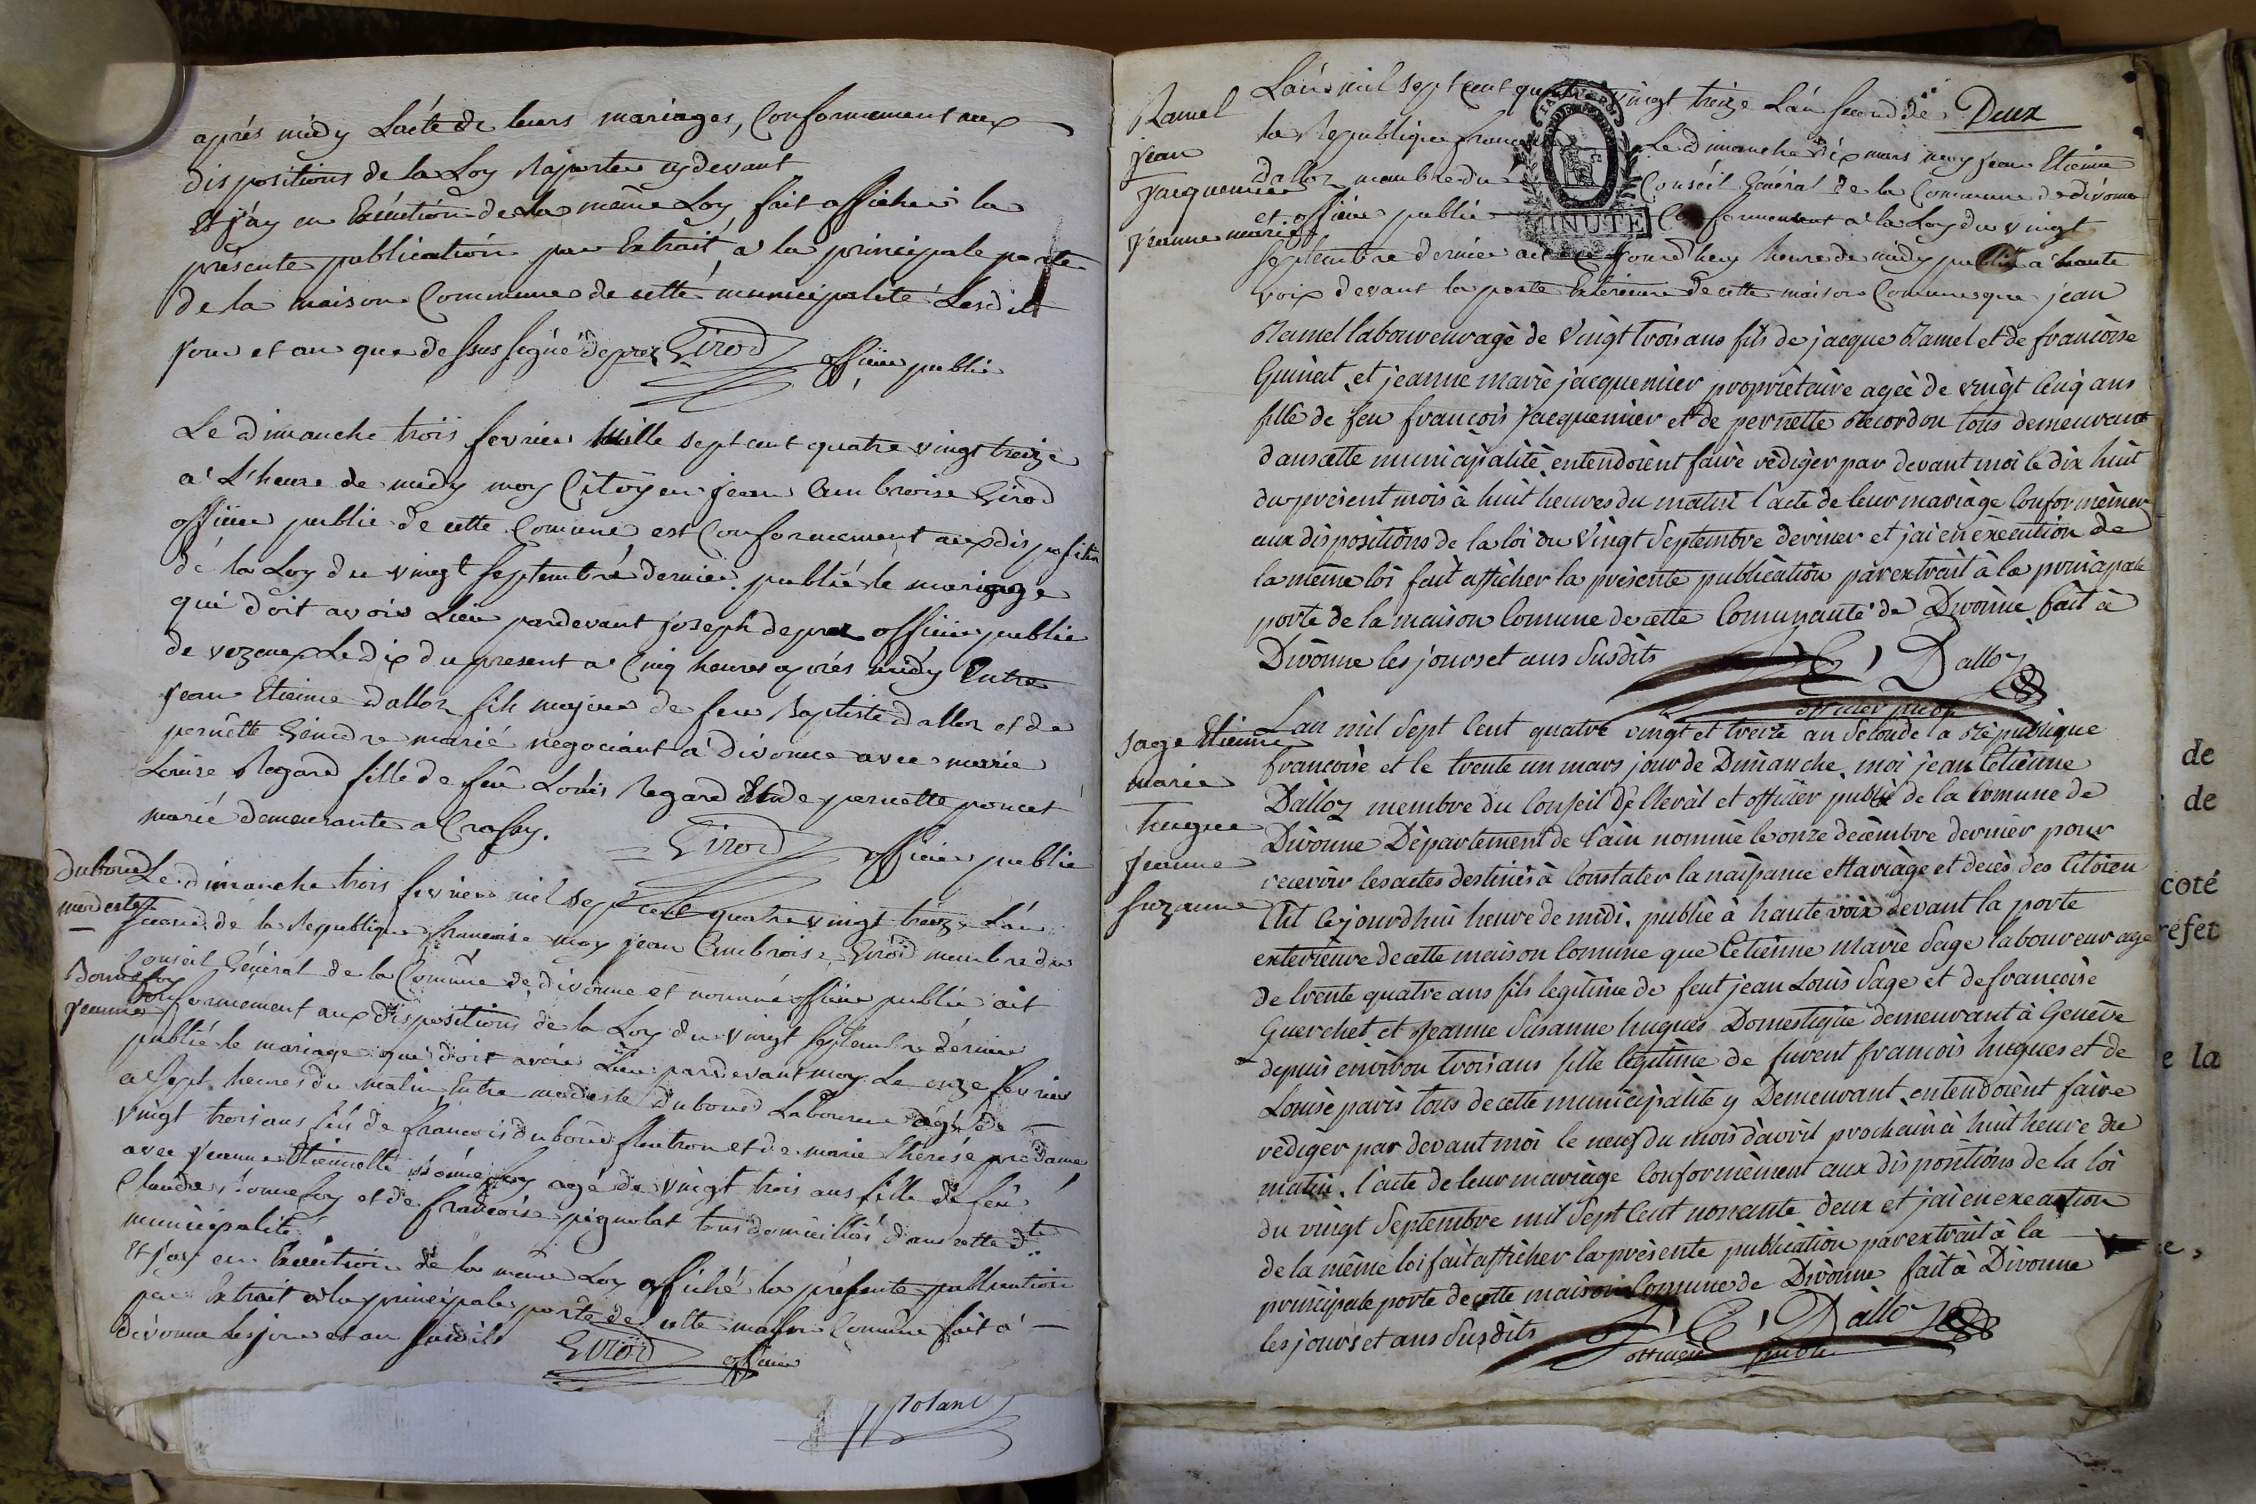 après midy L'acte de leurs mariages, Conformement aux
dispositions de la Loy Raportée cydevant
Et j'ay en Execution de la même Loy fait afficher la
présente publication par Extrait a la principale porte
de la maison Commune de cette municipalité Lesdits
jour et an que dessus signé Girod officier public
Le dimanche trois fevrier Mille sept cent quatre vingt treize
a L'heure de midy moy Citoyen jean Ambroise Girod
officier public de cette Comune est Conformement aux disposition
de la Loy du vingt septembre dernier publié le mariage
qui doit avoir Lieu pardevant joseph deprez officier public
de vezenex Le dix du present a Cinq heures après midy Entre
jean Etienne dalloz fils majeur de feu Baptiste dalloz et de
pernette Gendre marié negociant a divonne avec marie
Louise Regard fille de feu Louis Regard et de pernette poncet
marié demeurante a Crassy.
Girod officier public
Duboue
modeste
Bonnefoy
jeanne
Le dimanche trois fevrier mil sept cent quatre vingt treize L'an
second de la Republique francoise moy jean Ambroise Girod membre du
Conseil Général de la Commune de divonne et nommé officier public ait
Conformement aux dispositions de la Loy du vingt septembre dernier
publié le mariage qui doit avoir Lieu pardevant moy Le onze fevrier
a sept heures du matin Entre modeste duboue Laboureur agé de
vingt trois ans fils de francois duboue fleutron et de marie Thérése prodame
avec jeanne Etiennette Bonnefoy agé de vingt trois ans fille de feu
Claude Bonnefoy et de francoise pignolat tous domiciliés dans cette dte
municipalité
Et j'ay en Execution de la même Loy affiché la présente publication
par Extrait a la principale porte de cette maison Comune fait a
divonne les jour et an susdits
Girod officier
Rolant
Deux
Ramel
jean
jacquemier
jeanne marie
L'an mil sept cent quatre vingt treize L'an second de
la Republique francoise Le dimanche dix mars moy jean Etienne
dalloz membre du Conseil Général de la Commune de divonne
et officier public Conformement a la Loy du vingt
MINUTE
septembre dernier ait ce jourdhuy heure de midy publié a haute
voix devant la porte Exterieure de cette maison Commune que jean
Ramel laboureur agè de vingt trois ans fils de jacque Ramel et de francoise
Guinet, et jeanne marie jacquemier propriètaire agée de vingt cinq ans
fille de feu francois jacquemier et de pernette Recordon tous demeurant
dans cette municipalitè, entendoient faire rèdiger par devant moi le dix huit
du prèsent mois à huit heures du matin l'acte de leur mariage Conformèmen
aux dispositions de la loi du vingt Septembre dernier et j'ai en execution de
la même loi fait afficher la prèsente publication par extrait à la principale
porte de la maison Comune de cette Comunauté de Divonne fait à
Divonne les jours et ans Susdits
J, E, Dalloz
officier public
Sage Etienne
marie
hugue
jeanne
suzanne
Lan mil Sept Cent quatre vingt et treize an Second de la Rèpublique
francoise et le trente un mars jour de Dimanche, moi jean Etienne
Dalloz membre du Conseil Gèneral et officier public de la Comune de
Divonne Département de l'ain nommé le onze decèmbre dernier pour
recevoir les actes destinès à Constater la naissance Mariage et decès des Citoien
Ait Cejourdhui heure de midi, publie à haute voix devant la porte
exterieure de cette maison Comune que Etienne Marie Sage laboureur age
de trente quatre ans fils legitime de feut jean Louis Sage et de francoise
Guerchet et jeanne Susanne hugues Domestique demeurant à Genève
depuis environ trois ans fille lègitime de furent francois hugues et de
Louise paris tous de cette municipalitè y Demeurant, entendoient faire
rèdiger par devant moi le neuf du mois d'avril prochain à huit heure du
matin, l'acte de leur mariage Conformèment aux dispositions de la loi
du vingt Septembre mil Sept Cent nonante deux et j'ai en execution
de la même loi fait afficher la prèsente publication par extrait à la
principale porte de cette maison Comune de Divonne fait à Divonne
les jours et ans Susdits
J, E, Dalloz
officier public
de
de
coté
réfet
e la
e,